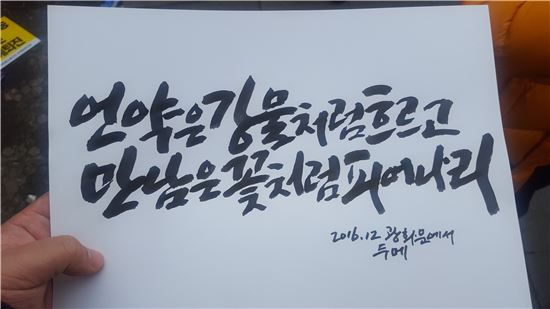 언약은강물처럼흐르고
만남은꽃처럼피어나리
2016.12 광화문에서
두메